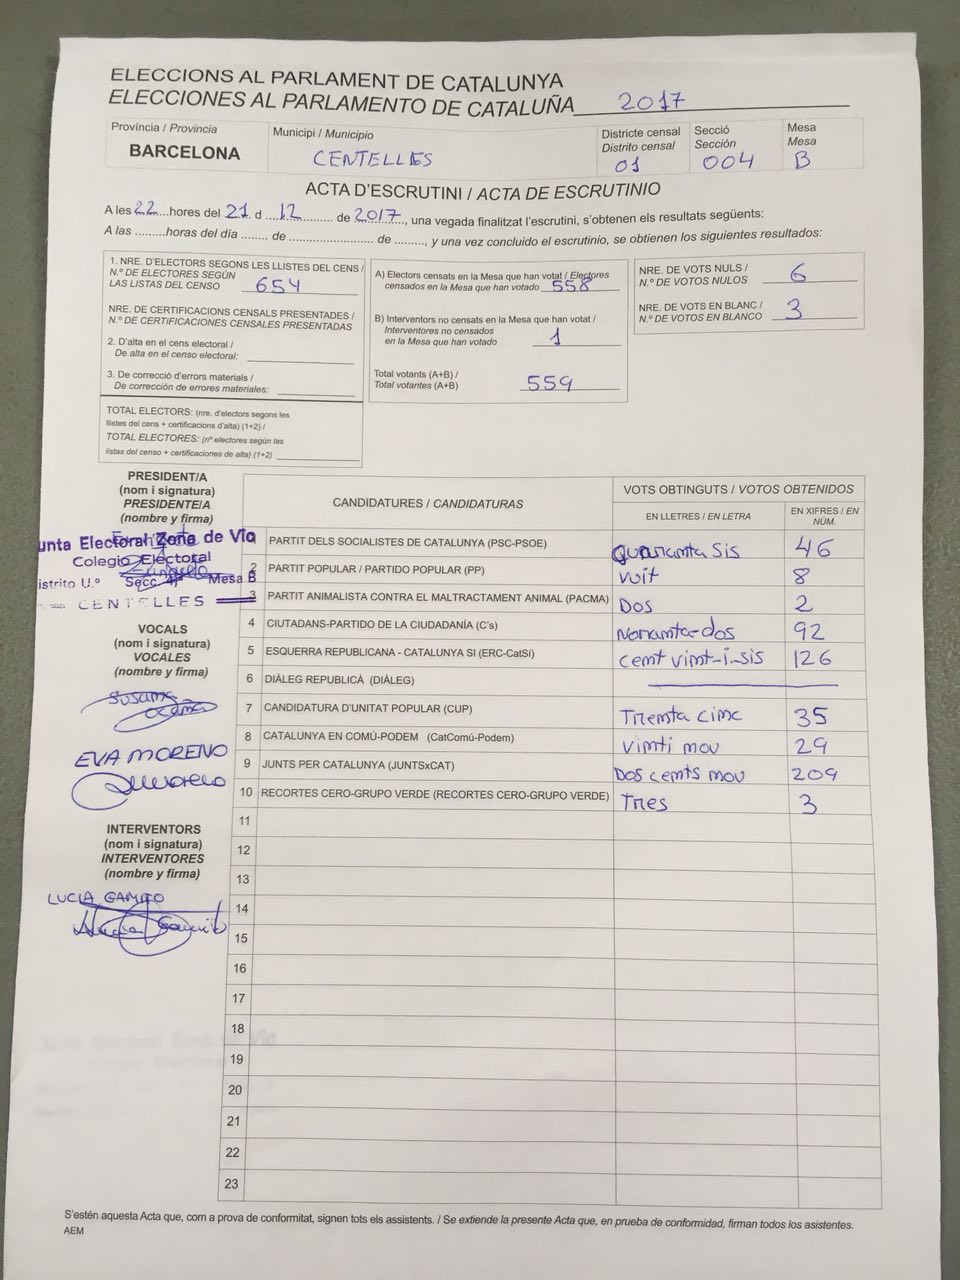 ELECCIONS AL PARLAMENT DE CATALUNYA
ELECCIONES AL PARLAMENTO DE CATALUÑA 2017
Província / Provincia
BARCELONA
Municipi / Municipio
CENTELLES
Districte censal
Distrito censal
01
Secció
Sección
004
Mesa
Mesa
B
ACTA D'ESCRUTINI / ACTA DE ESCRUTINIO
A les 22 hores del 21 d 12 de 2017, una vegada finalitzat l'escrutini, s'obtenen els resultats següents:
A las .........horas del día ........ de ........................ de ........, y una vez concluido el escrutinio, se obtienen los siguientes resultados:
1. NRE. D'ELECTORS SEGONS LES LLISTES DEL CENS /
N.º DE ELECTORES SEGÚN
LAS LISTAS DEL CENSO 654
NRE. DE CERTIFICACIONS CENSALS PRESENTADES /
N.º DE CERTIFICACIONES CENSALES PRESENTADAS
2. D'alta en el cens electoral /
De alta en el censo electoral:
3. De correcció d'errors materials /
De corrección de errores materiales:
TOTAL ELECTORS: (nre. d'electors segons les
llistes del cens + certificacions d'alta) (1+2) /
TOTAL ELECTORES: (nº electores según las
listas del censo + certificaciones de alta) (1+2)
A) Electors censats en la Mesa que han votat / Electores
censados en la Mesa que han votado 558
B) Interventors no censats en la Mesa que han votat /
Interventores no censados
en la Mesa que han votado 1
Total votants (A+B) /
Total votantes (A+B) 559
NRE. DE VOTS NULS /
N.º DE VOTOS NULOS 6
NRE. DE VOTS EN BLANC /
N.º DE VOTOS EN BLANCO 3
PRESIDENT/A
(nom i signatura)
PRESIDENTE/A
(nombre y firma)
unta Electoral Zona de Vic
Colegio Electoral
istrito U.º Secc 4ª Mesa B
CENTELLES
VOCALS
(nom i signatura)
VOCALES
(nombre y firma)
Susana
Ocaña
EVA MORENO
INTERVENTORS
(nom i signatura)
INTERVENTORES
(nombre y firma)
LUCIA GAMITO
CANDIDATURES / CANDIDATURAS
VOTS OBTINGUTS / VOTOS OBTENIDOS
EN LLETRES / EN LETRA
EN XIFRES / EN NÚM.
PARTIT DELS SOCIALISTES DE CATALUNYA (PSC-PSOE) Quaranta sis 46
2 PARTIT POPULAR / PARTIDO POPULAR (PP) vuit 8
3 PARTIT ANIMALISTA CONTRA EL MALTRACTAMENT ANIMAL (PACMA) Dos 2
4 CIUTADANS-PARTIDO DE LA CIUDADANÍA (C's) Noranta-dos 92
5 ESQUERRA REPUBLICANA - CATALUNYA SI (ERC-CatSí) cent vint-i-sis 126
6 DIÀLEG REPUBLICÀ (DIÀLEG)
7 CANDIDATURA D'UNITAT POPULAR (CUP) Trenta cinc 35
8 CATALUNYA EN COMÚ-PODEM (CatComú-Podem) Vinti nou 29
9 JUNTS PER CATALUNYA (JUNTSxCAT) Dos cents nou 209
10 RECORTES CERO-GRUPO VERDE (RECORTES CERO-GRUPO VERDE) Tres 3
11
12
13
14
15
16
17
18
19
20
21
22
23
S'estén aquesta Acta que, com a prova de conformitat, signen tots els assistents. / Se extiende la presente Acta que, en prueba de conformidad, firman todos los asistentes.
AEM